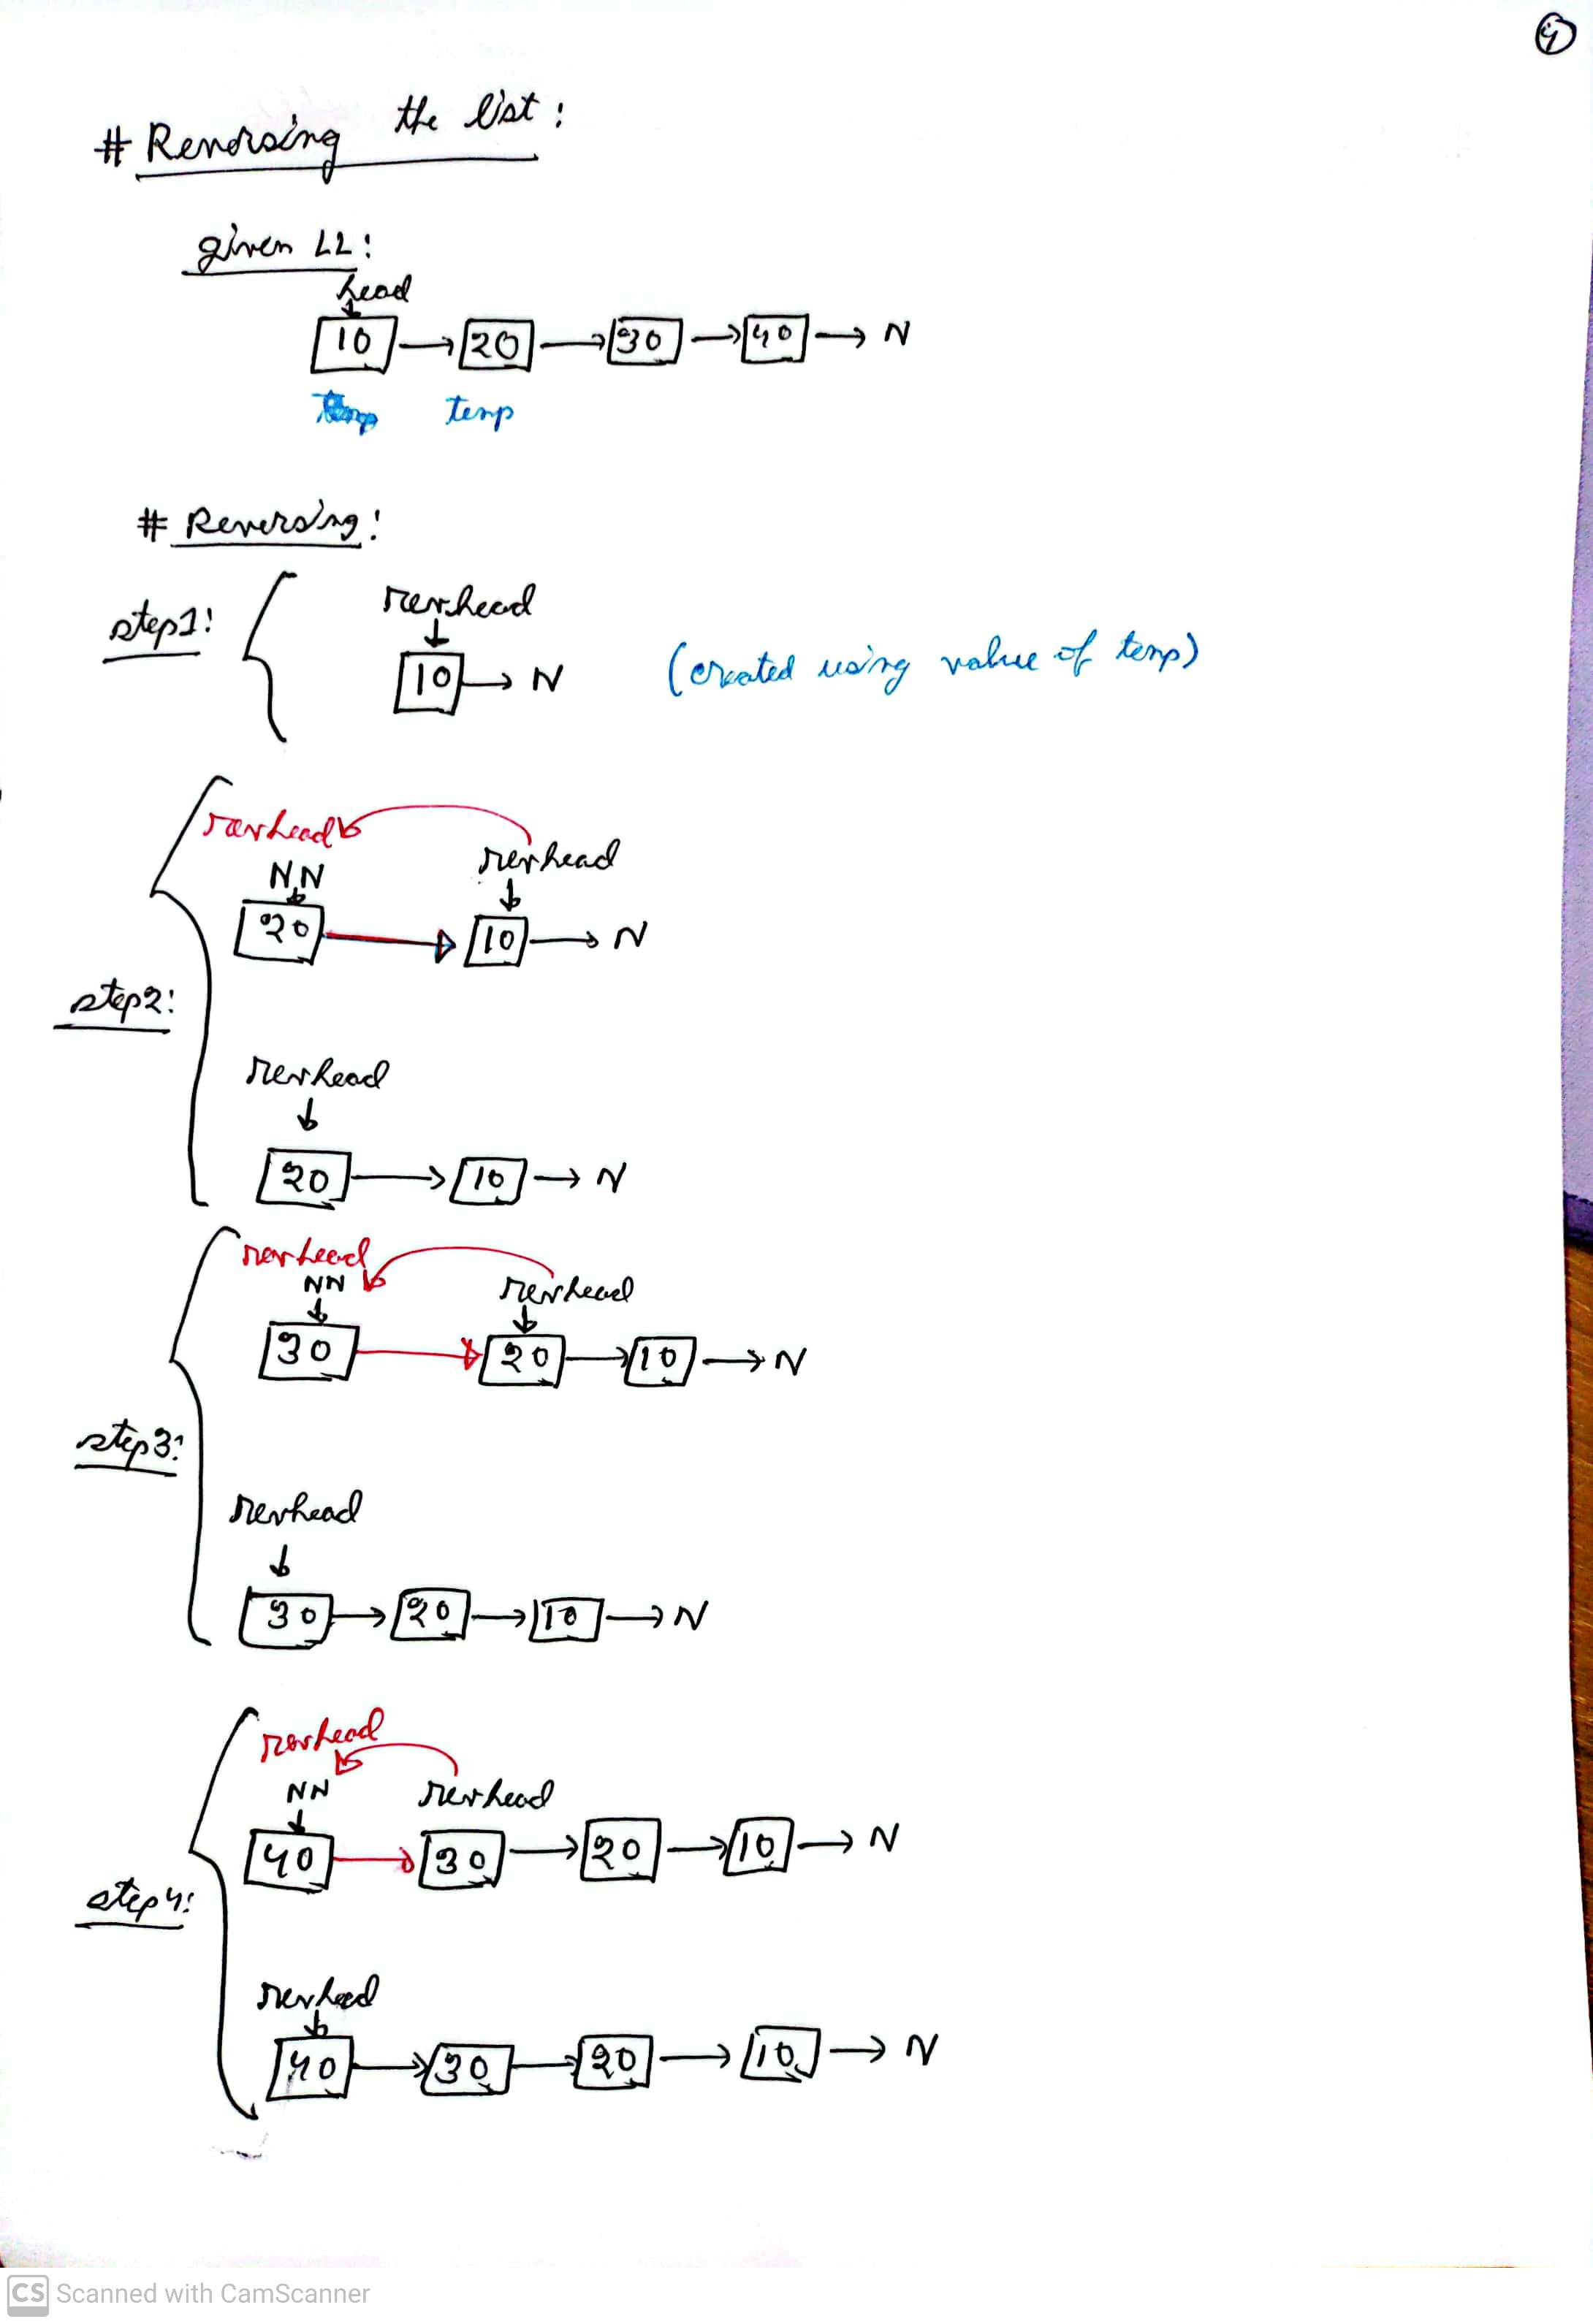 4
# Reversing the list :
given LL:
head
10 → 20 → 30 → 40 → N
temp temp
# Reversing:
step1:
revhead
10 → N (created using value of temp)
revhead
revhead
NN
20 → 10 → N
step2:
revhead
20 → 10 → N
revhead
NN revhead
30 → 20 → 10 → N
step3:
revhead
30 → 20 → 10 → N
revhead
NN revhead
40 → 30 → 20 → 10 → N
step4:
revhead
40 → 30 → 20 → 10 → N
CS Scanned with CamScanner